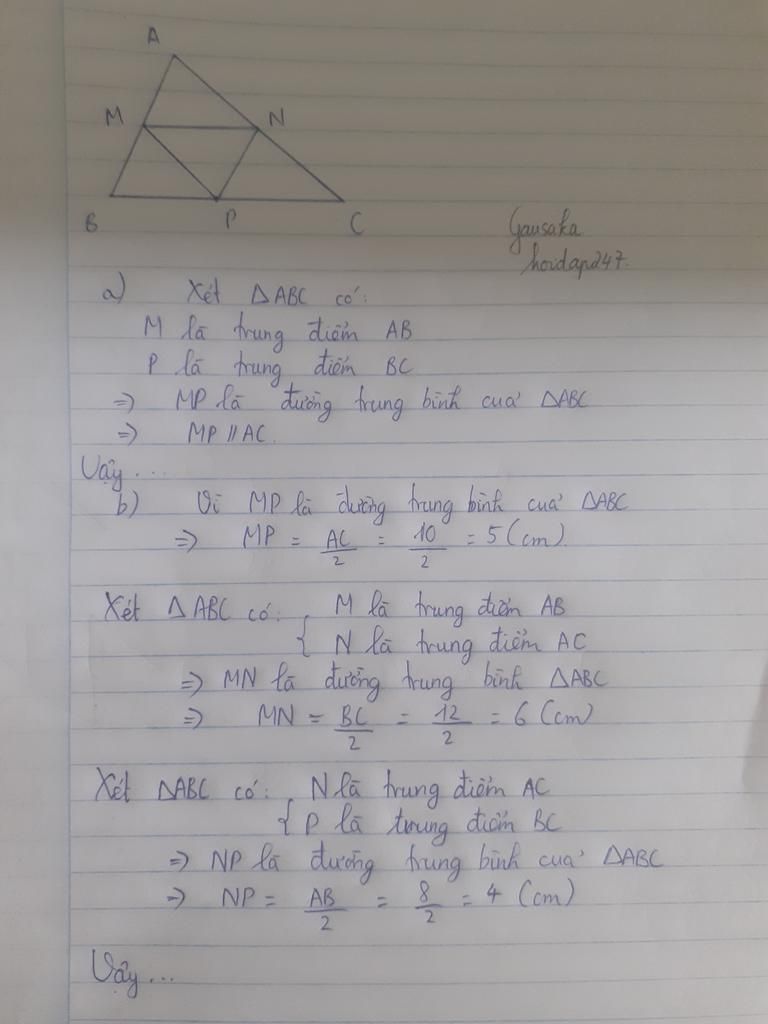 A
M N
B P C
Gausaka
hoidap247.
a) Xét ΔABC có:
M là trung điểm AB
P là trung điểm BC
=> MP là đường trung bình của ΔABC
=> MP // AC.
Vậy ...
b) Vì MP là đường trung bình của ΔABC
=> MP = AC/2 = 10/2 = 5 (cm)
Xét ΔABC có: { M là trung điểm AB
N là trung điểm AC
=> MN là đường trung bình ΔABC
=> MN = BC/2 = 12/2 = 6 (cm)
Xét ΔABC có: { N là trung điểm AC
P là trung điểm BC
=> NP là đường trung bình của ΔABC
=> NP = AB/2 = 8/2 = 4 (cm)
Vậy ...